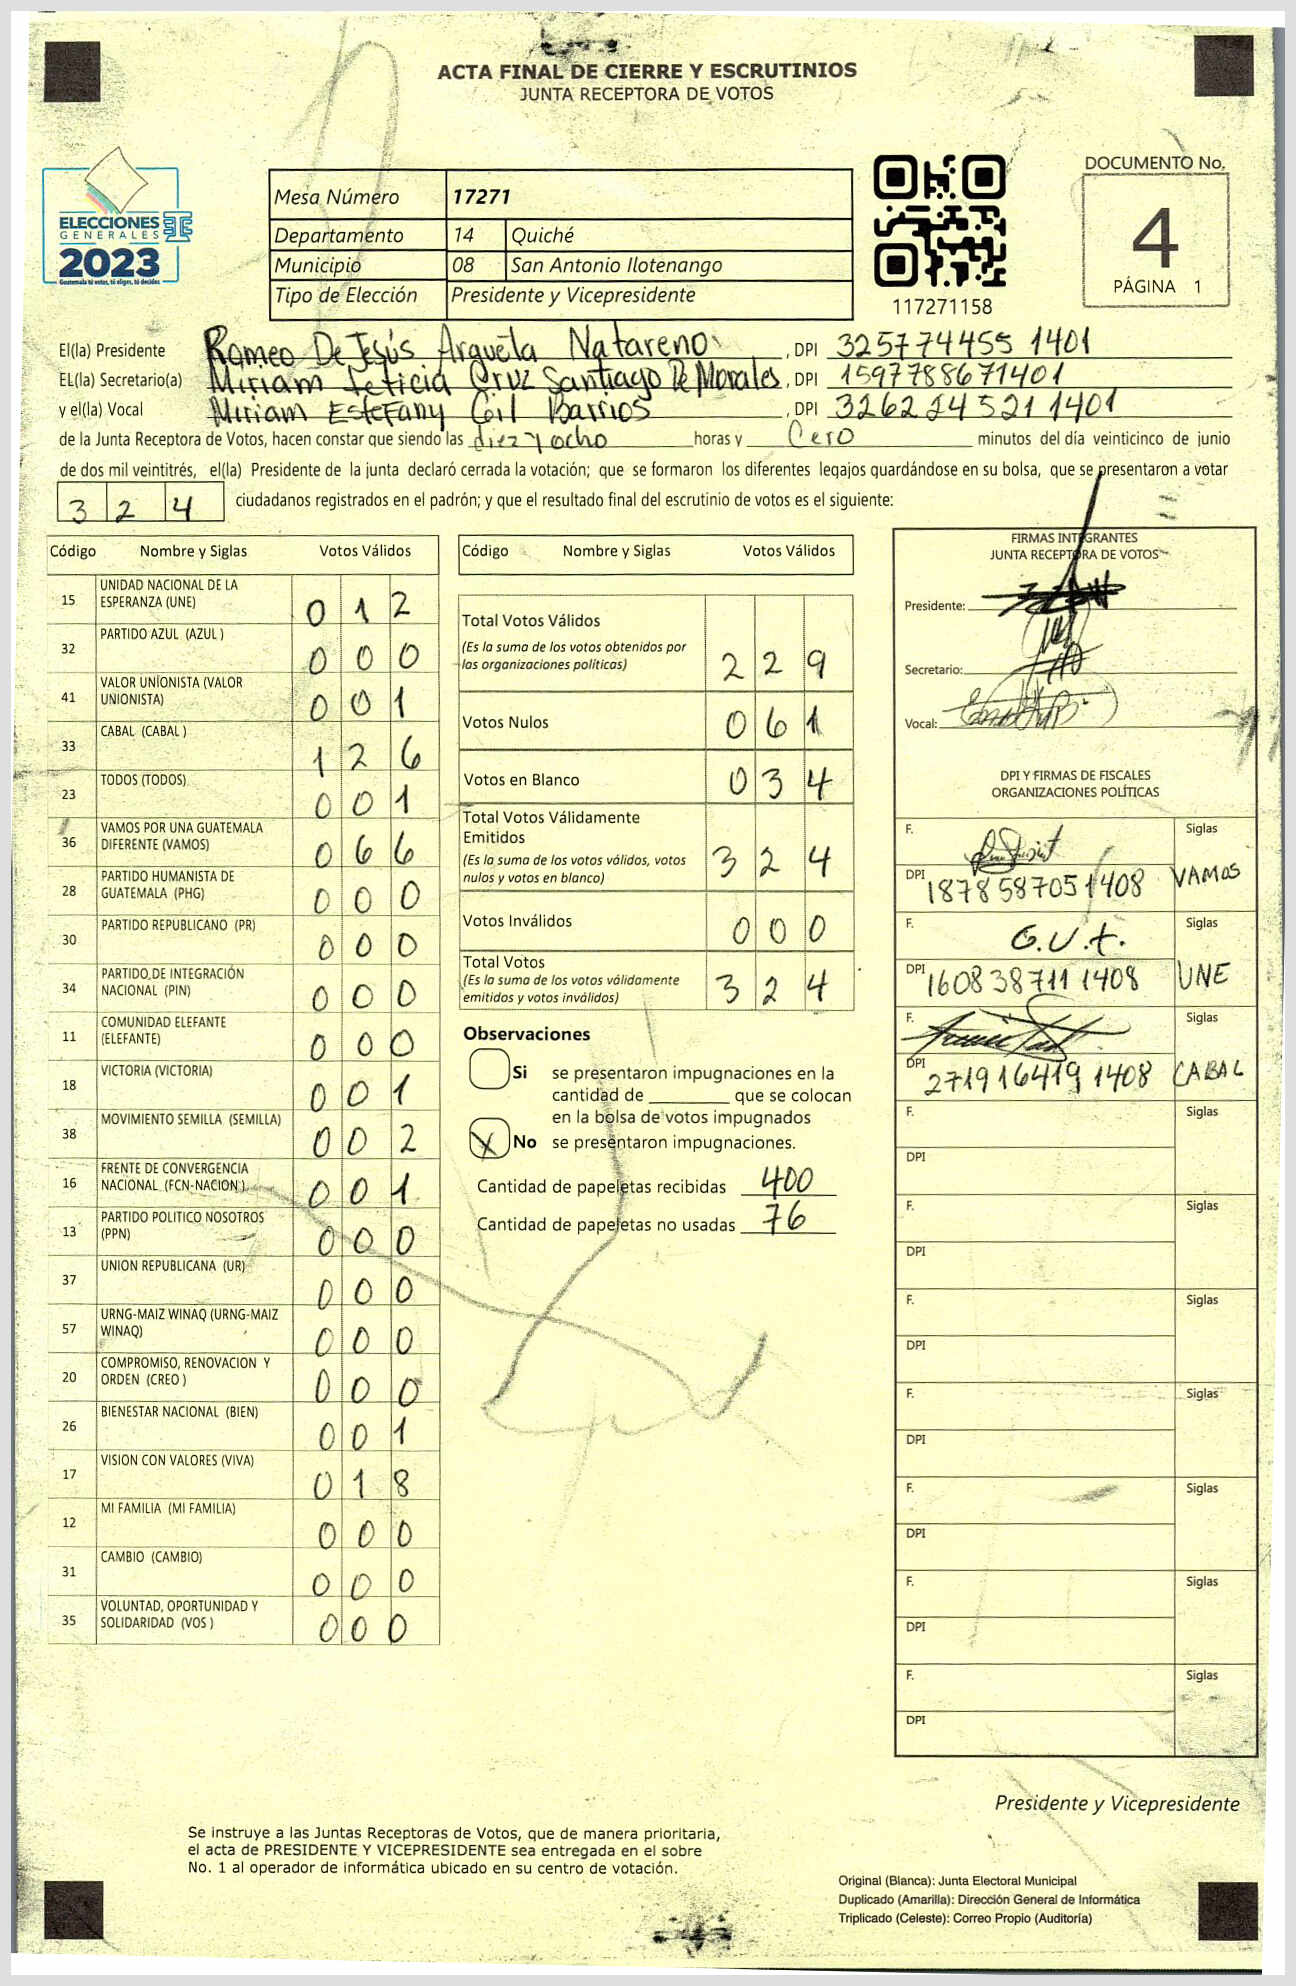 ACTA FINAL DE CIERRE Y ESCRUTINIOS
JUNTA RECEPTORA DE VOTOS
ELECCIONES
GENERALES
2023
Guatemala tú votas, tú eliges, tú decides
Mesa Número 17271
Departamento 14 Quiché
Municipio 08 San Antonio Ilotenango
Tipo de Elección Presidente y Vicepresidente
117271158
DOCUMENTO No.
4
PÁGINA 1
El(la) Presidente Romeo De Jesús Argueta Natareno, DPI 325774455 1401
EL(la) Secretario(a) Miriam Leticia Cruz Santiago De Morales, DPI 1597788671401
y el(la) Vocal Miriam Estefany Gil Barrios, DPI 3262245211401
de la Junta Receptora de Votos, hacen constar que siendo las diez y ocho horas y Cero minutos del día veinticinco de junio
de dos mil veintitrés, el(la) Presidente de la junta declaró cerrada la votación; que se formaron los diferentes legajos quardándose en su bolsa, que se presentaron a votar
3 2 4 ciudadanos registrados en el padrón; y que el resultado final del escrutinio de votos es el siguiente:
Código Nombre y Siglas Votos Válidos
15 UNIDAD NACIONAL DE LA ESPERANZA (UNE) 0 1 2
32 PARTIDO AZUL (AZUL ) 0 0 0
41 VALOR UNIONISTA (VALOR UNIONISTA) 0 0 1
33 CABAL (CABAL ) 1 2 6
23 TODOS (TODOS) 0 0 1
36 VAMOS POR UNA GUATEMALA DIFERENTE (VAMOS) 0 6 6
28 PARTIDO HUMANISTA DE GUATEMALA (PHG) 0 0 0
30 PARTIDO REPUBLICANO (PR) 0 0 0
34 PARTIDO DE INTEGRACIÓN NACIONAL (PIN) 0 0 0
11 COMUNIDAD ELEFANTE (ELEFANTE) 0 0 0
18 VICTORIA (VICTORIA) 0 0 1
38 MOVIMIENTO SEMILLA (SEMILLA) 0 0 2
16 FRENTE DE CONVERGENCIA NACIONAL (FCN-NACION ) 0 0 1
13 PARTIDO POLITICO NOSOTROS (PPN) 0 0 0
37 UNION REPUBLICANA (UR) 0 0 0
57 URNG-MAIZ WINAQ (URNG-MAIZ WINAQ) 0 0 0
20 COMPROMISO, RENOVACION Y ORDEN (CREO ) 0 0 0
26 BIENESTAR NACIONAL (BIEN) 0 0 1
17 VISION CON VALORES (VIVA) 0 1 8
12 MI FAMILIA (MI FAMILIA) 0 0 0
31 CAMBIO (CAMBIO) 0 0 0
35 VOLUNTAD, OPORTUNIDAD Y SOLIDARIDAD (VOS ) 0 0 0
Código Nombre y Siglas Votos Válidos
Total Votos Válidos
(Es la suma de los votos obtenidos por
las organizaciones políticas) 2 2 9
Votos Nulos 0 6 1
Votos en Blanco 0 3 4
Total Votos Válidamente
Emitidos
(Es la suma de los votos válidos, votos
nulos y votos en blanco) 3 2 4
Votos Inválidos 0 0 0
Total Votos
(Es la suma de los votos válidamente
emitidos y votos inválidos) 3 2 4
Observaciones
Si se presentaron impugnaciones en la
cantidad de ________ que se colocan
en la bolsa de votos impugnados
X No se presentaron impugnaciones.
Cantidad de papeletas recibidas 400
Cantidad de papeletas no usadas 76
FIRMAS INTEGRANTES
JUNTA RECEPTORA DE VOTOS
Presidente:
Secretario:
Vocal:
DPI Y FIRMAS DE FISCALES
ORGANIZACIONES POLÍTICAS
F. Siglas
DPI 1878587051408 VAMOS
F. G.U.t. Siglas
DPI 1608387111408 UNE
F. Siglas
DPI 2719164191408 CABAL
F. Siglas
DPI
F. Siglas
DPI
F. Siglas
DPI
F. Siglas
DPI
F. Siglas
DPI
F. Siglas
DPI
F. Siglas
DPI
Presidente y Vicepresidente
Se instruye a las Juntas Receptoras de Votos, que de manera prioritaria,
el acta de PRESIDENTE Y VICEPRESIDENTE sea entregada en el sobre
No. 1 al operador de informática ubicado en su centro de votación.
Original (Blanca): Junta Electoral Municipal
Duplicado (Amarilla): Dirección General de Informática
Triplicado (Celeste): Correo Propio (Auditoría)